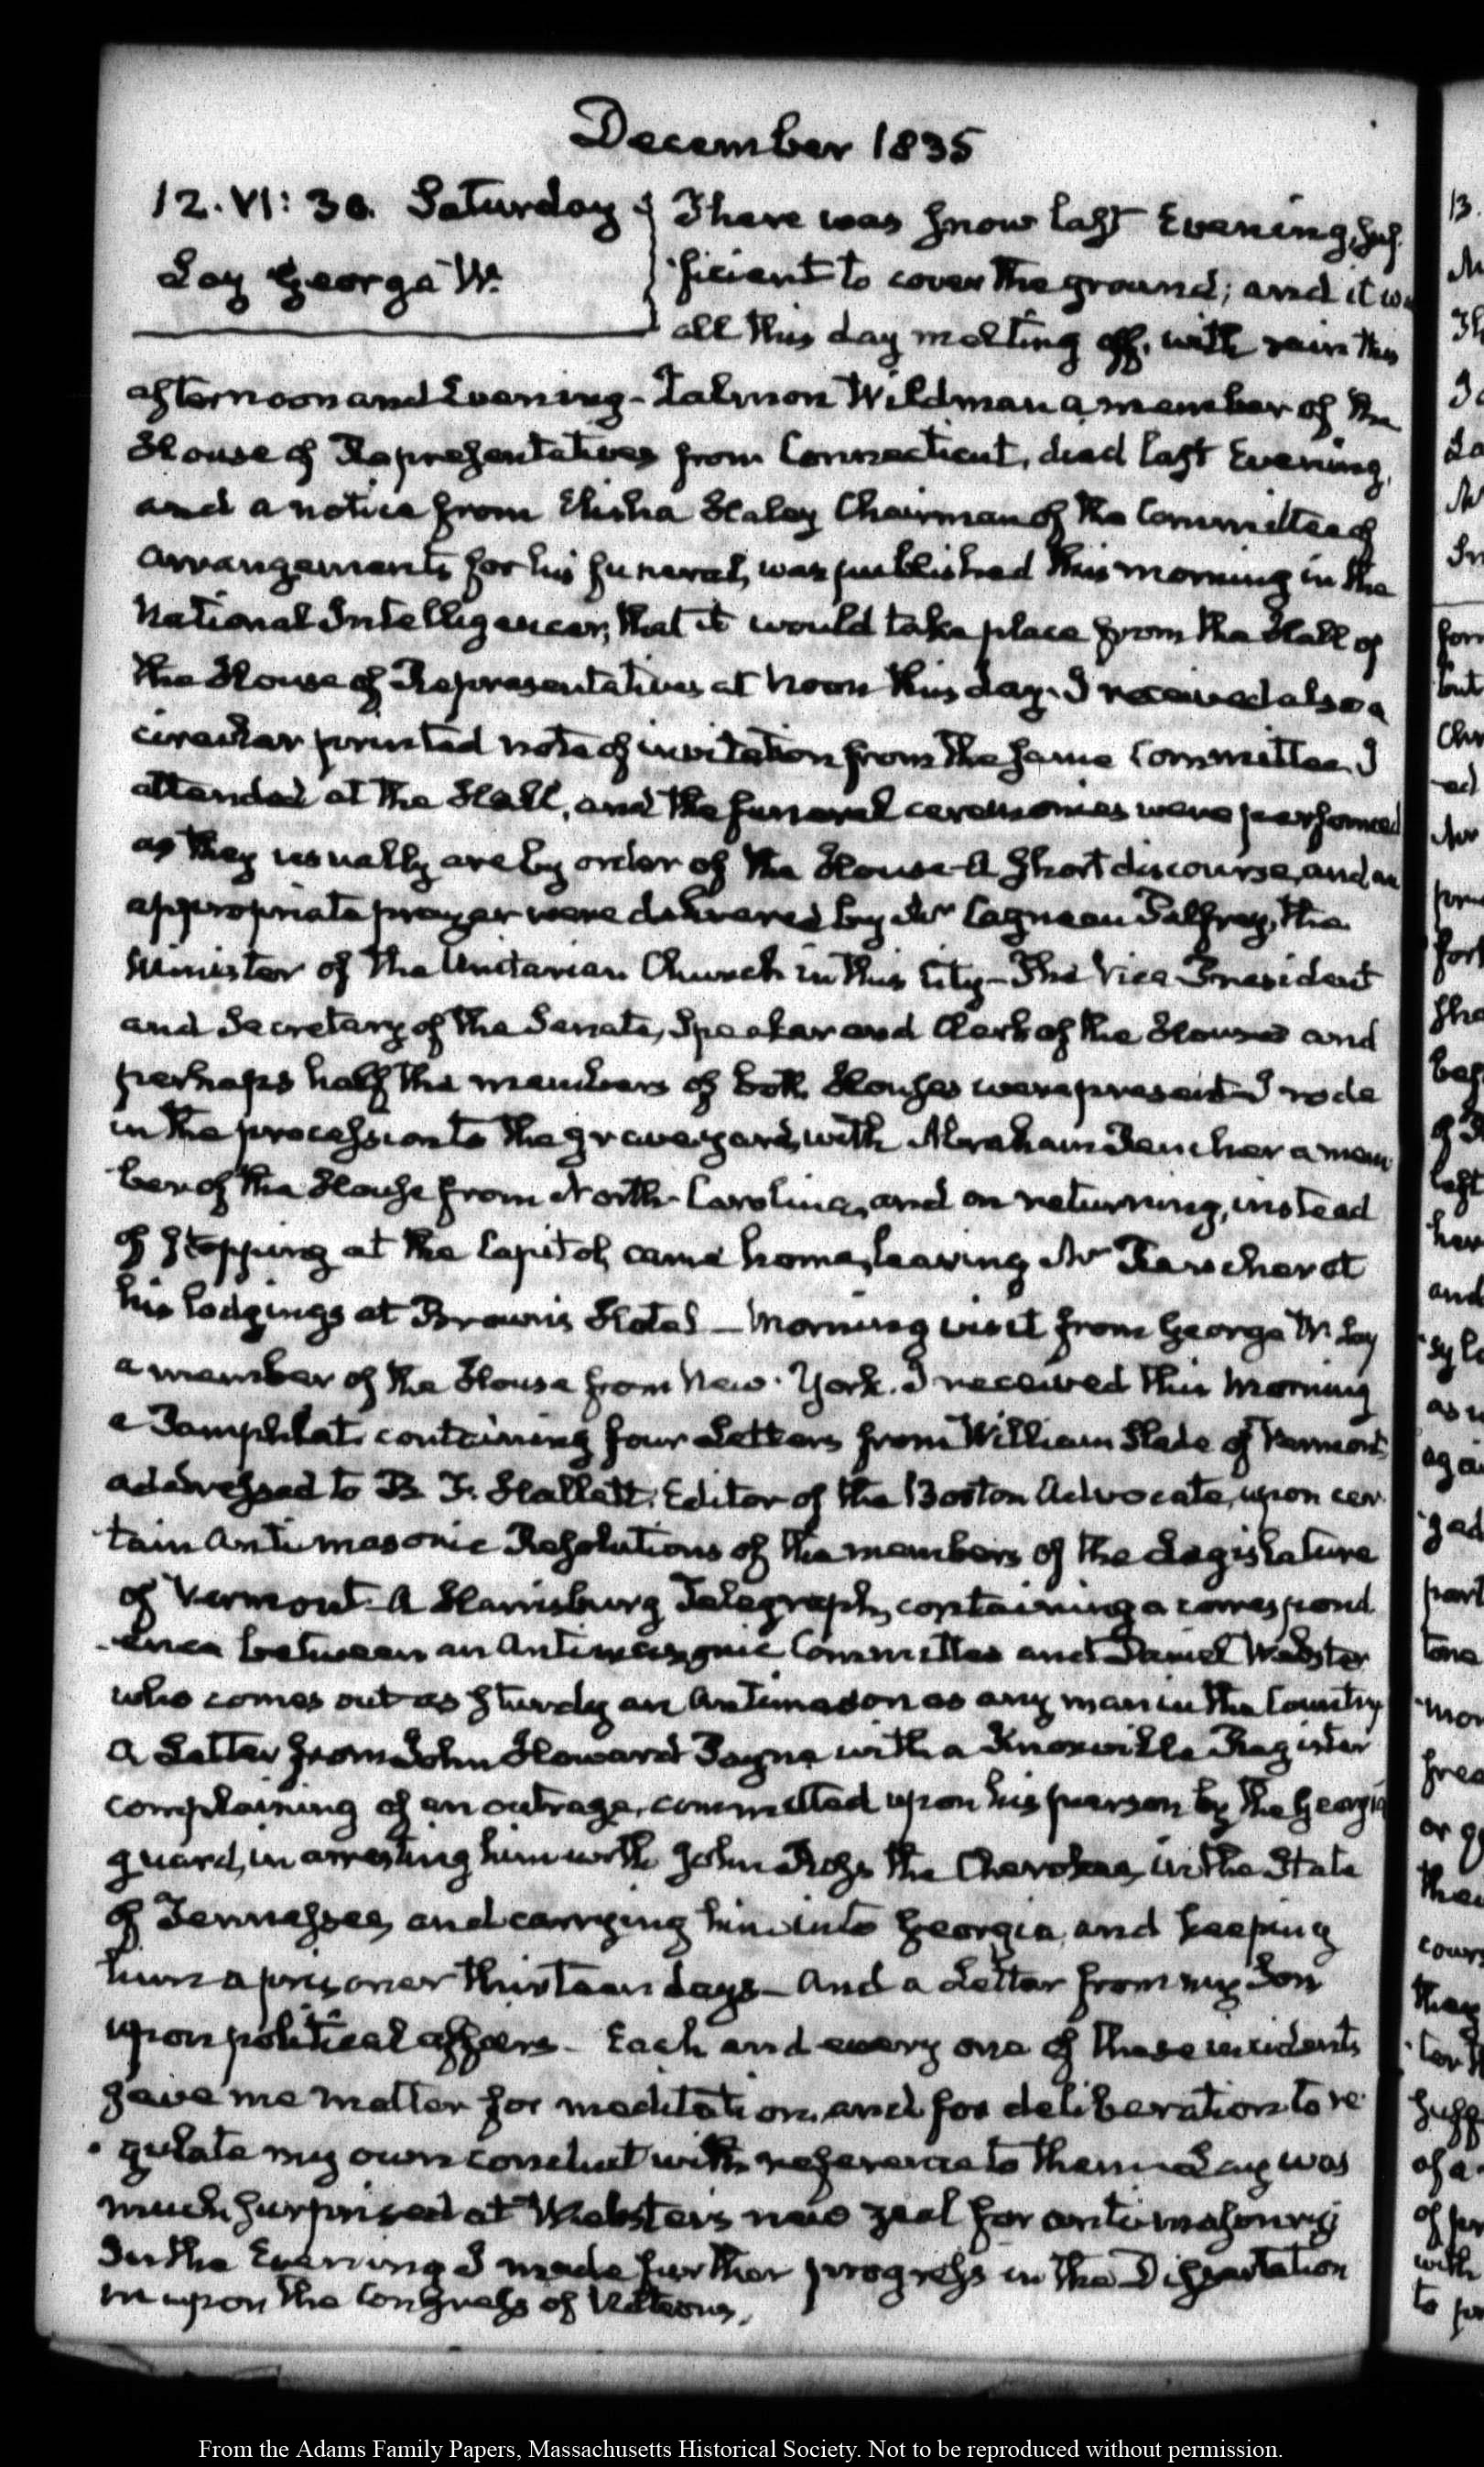 December 1835
12. VI: 30. Saturday
Lay George W.
There was snow last Evening, suf
ficient to cover the ground; and it was
all this day melting off, with rain this
afternoon and Evening - Zalmon Wildman a member of the
House of Representatives from Connecticut, died last Evening,
and a notice from Elisha Haley Chairman of the Committee of
arrangements for his funeral, was published this morning in the
National Intelligencer, that it would take place from the Hall of
the House of Representatives at Noon this day. I received also a
circular printed note of invitation from the same Committee. I
attended at the Hall, and the funeral ceremonies were performed
as they usually are by order of the House - A short discourse, and an
appropriate prayer were delivered by Mr Palfrey, the
Minister of the Unitarian Church in this City - The Vice-President
and Secretary of the Senate, Speaker and Clerk of the House and
perhaps half the members of both Houses were present - I rode
in the procession to the graveyard, with Abraham Rencher a mem
ber of the House from North-Carolina, and on returning, instead
of stopping at the Capitol, came home, leaving Mr Rencher at
his lodgings at Brown's Hotel - Morning visit from George W. Lay
a member of the House from New-York. I received this Morning
a Pamphlet, containing four Letters from William Slade of Vermont
addressed to B. F. Hallett. Editor of the Boston Advocate, upon cer
tain Antimasonic Resolutions of the members of the Legislature
of Vermont - A Harrisburg Telegraph, containing a correspond
-ence between an Antimasonic Committee and Daniel Webster
who comes out as sturdy an Antimason as any man in the Country
A Letter from John Howard Payne with a Knoxville Register
complaining of an outrage, committed upon his person by the Georgia
guard, in arresting him with John Ross the Cherokee, in the State
of Tennessee, and carrying him into Georgia, and keeping
him a prisoner thirteen days - And a Letter from my Son
upon political affairs - Each and every one of these incidents
gave me matter for meditation, and for deliberation to re
gulate my own conduct with reference to them. Lay was
much surprised at Webster's new zeal for antimasonry
In the Evening I made further progress in the Dissertation
upon the Congress of Nations,
From the Adams Family Papers, Massachusetts Historical Society. Not to be reproduced without permission.